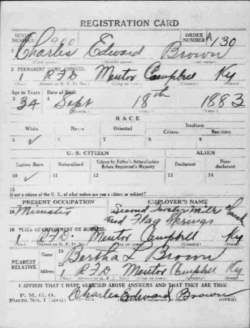 REGISTRATION CARD
SERIAL NUMBER
ORDER NUMBER A 130
1 Charlie Edward Brown
2 PERMANENT HOME ADDRESS:
1 RFD Mentor Campbell Ky
Age in Years
Date of Birth
34 Sept 18th 1883
RACE
White
Negro
Oriental
Indian
Citizen
Noncitizen
U. S. CITIZEN
ALIEN
Native Born
Naturalized
Citizen by Father's Naturalization Before Registrant's Majority
Declarant
Non-declarant
10
If not a citizen of the U. S., of what nation are you a citizen or subject?
PRESENT OCCUPATION
EMPLOYER'S NAME
Minister
Second
Flag Springs
PLACE OF EMPLOYMENT OR BUSINESS:
RFD. Mentor Campbell Ky
NEAREST RELATIVE
Bertha L Brown
1 RFD Mentor Campbell Ky
I AFFIRM THAT I HAVE VERIFIED ABOVE ANSWERS AND THAT THEY ARE TRUE
P. M. G. O.
Form No. 1
Charlie Edward Brown